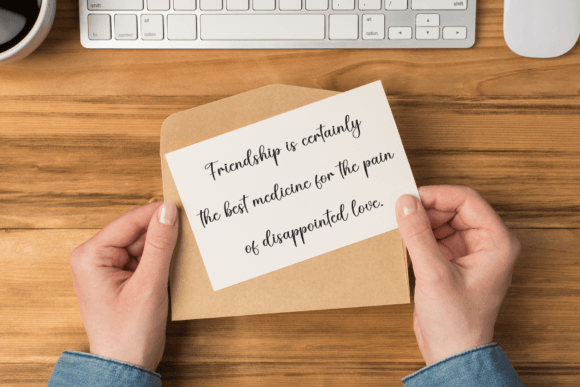 shift
control
option
command
command
option
control
shift
Friendship is certainly
the best medicine for the pain
of disappointed love.